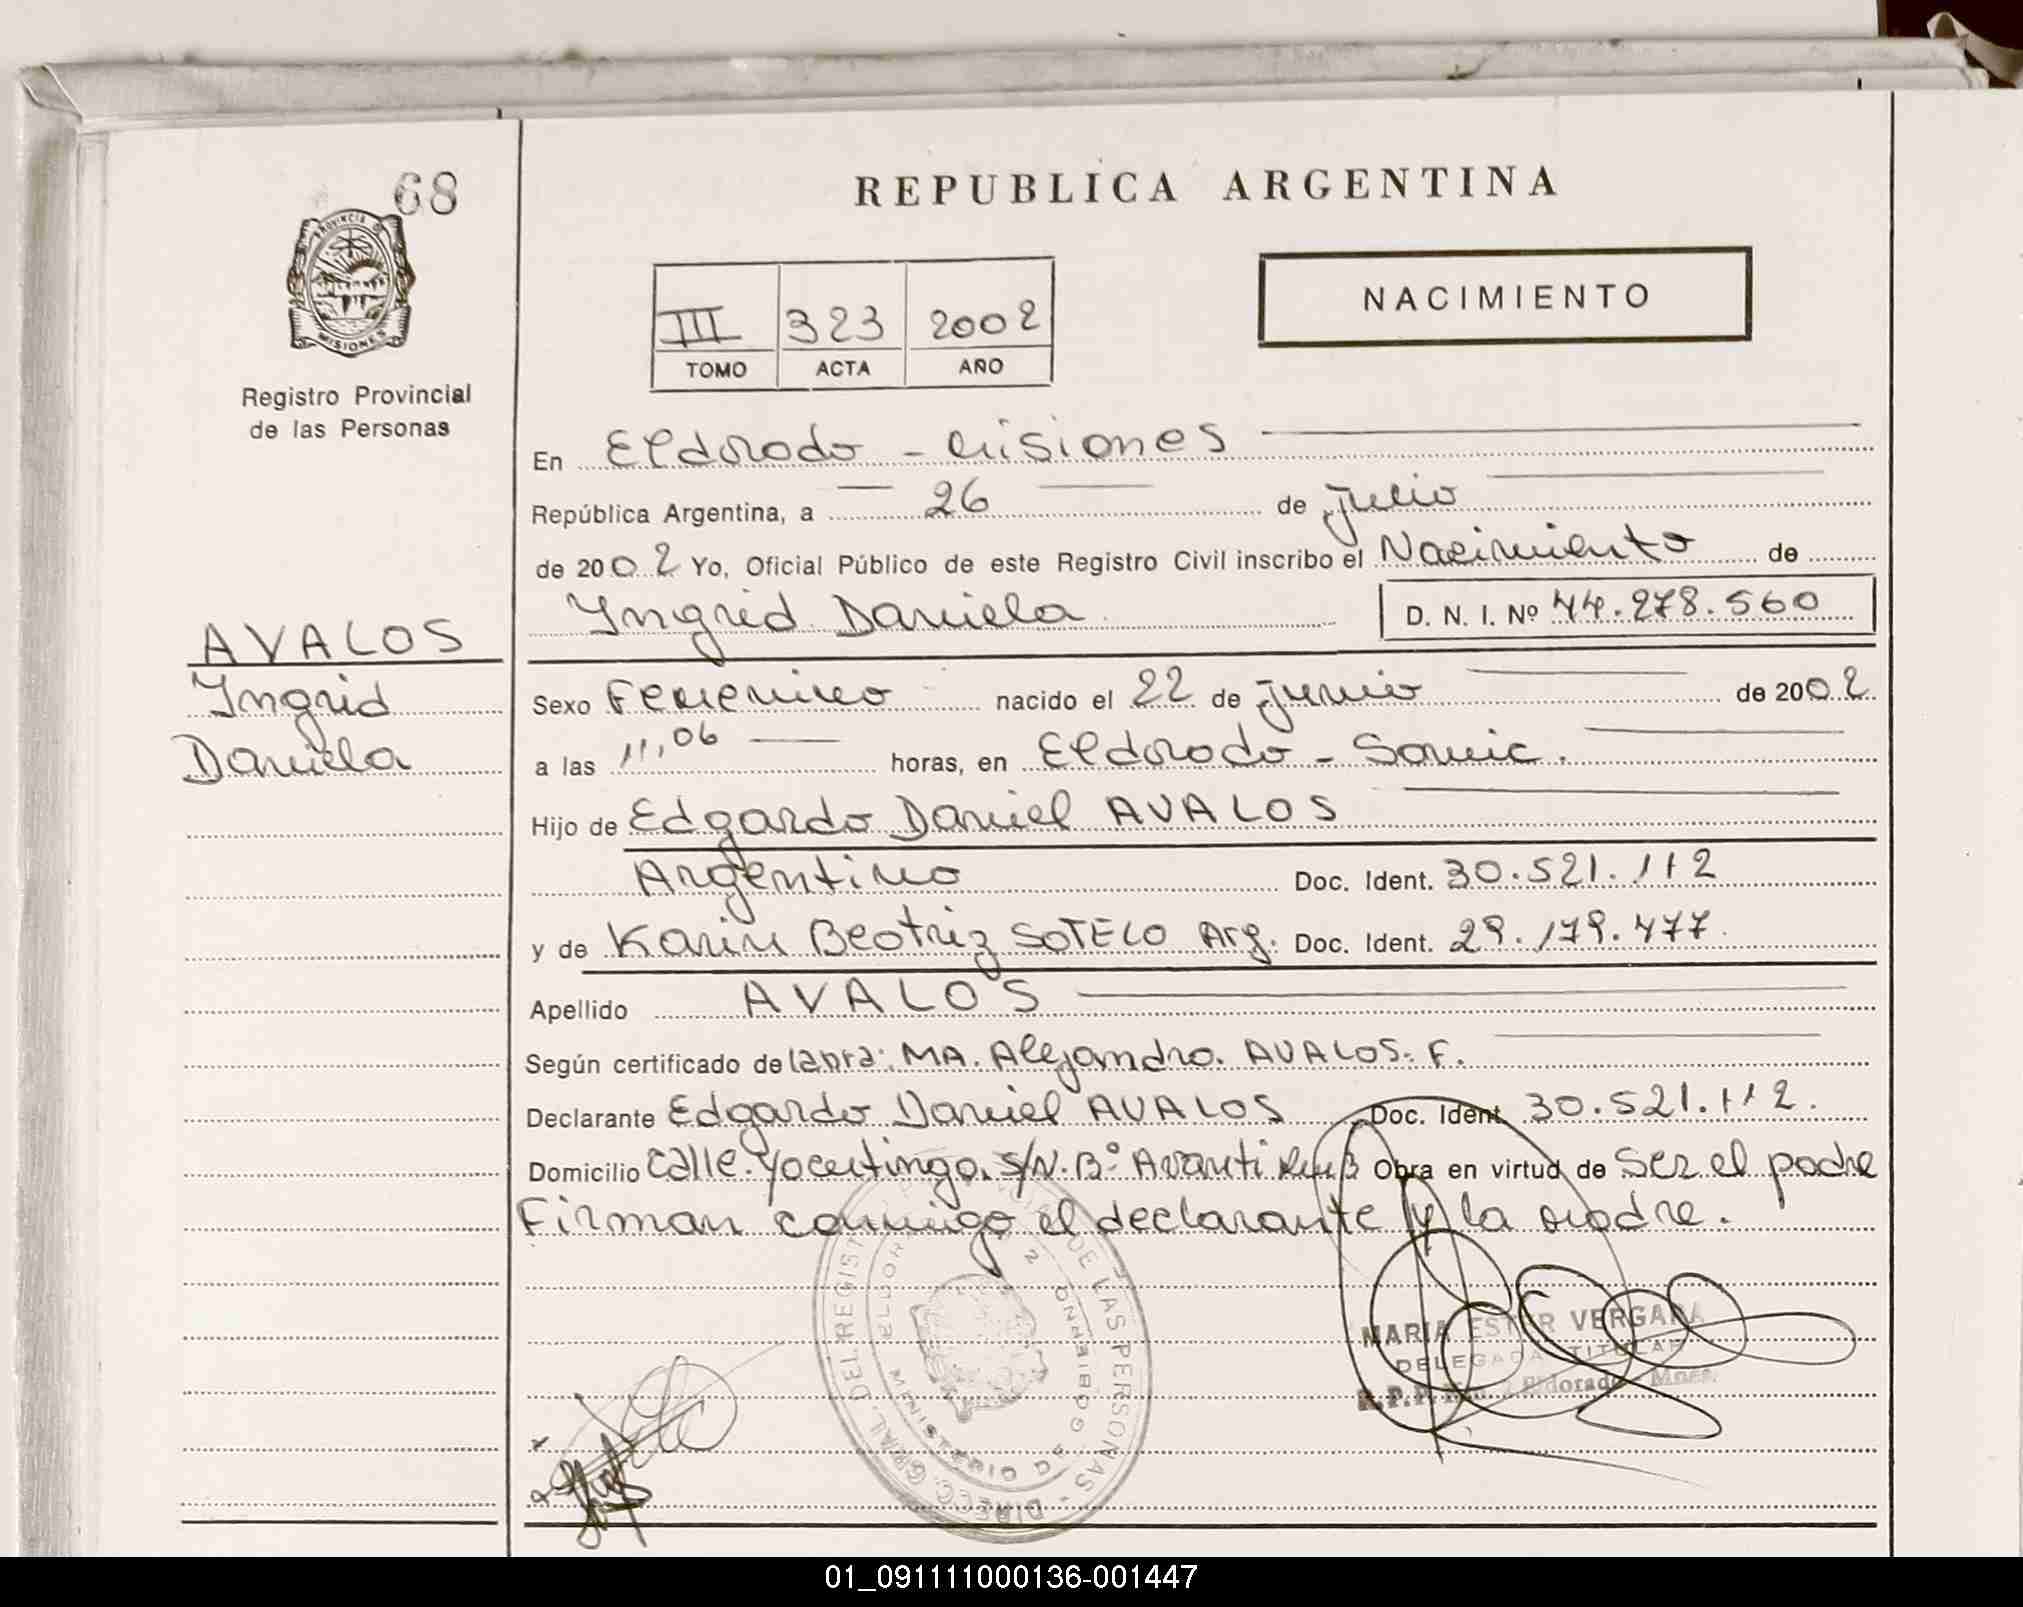 68
PROVINCIA D
MISIONES
Registro Provincial
de las Personas
AVALOS
Yngrid
Daniela
REPUBLICA ARGENTINA
III 323 2002
TOMO ACTA AÑO
NACIMIENTO
En Eldorado - Misiones
República Argentina, a 26 de julio
de 2002 Yo, Oficial Público de este Registro Civil inscribo el Nacimiento de
Yngrid Daniela D. N. I. Nº 44.278.560
Sexo Femenino nacido el 22 de junio de 2002
a las 11,06 horas, en Eldorado - Samic.
Hijo de Edgardo Daniel AVALOS
Argentino Doc. Ident. 30.521.112
y de Karin Beatriz SOTELO Arg. Doc. Ident. 29.179.477
Apellido AVALOS
Según certificado de MA. Alejandro. AVALOS. F.
Declarante Edgardo Daniel AVALOS Doc. Ident. 30.521.112.
Domicilio Calle. S/N. Bº Avanti Obra en virtud de Ser el padre
Firman conmigo el declarante y la madre.
DIRECC. GRAL. DEL REGISTRO PROVINCIAL DE LAS PERSONAS
MINISTERIO DE GOBIERNO
ELDORADO 2
MARIA ESTER VERGARA
DELEGADA TITULAR
R.P.P. Eldorado - Mnes.
01_091111000136-001447